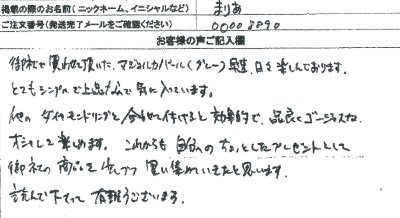 掲載の際のお名前(ニックネーム、イニシャルなど)
まりあ
ご注文番号(発送完了メールをご確認ください)
00008890
お客様の声ご記入欄
御社で買わせて頂いた、マジョルカパール(グレー)毎日を楽しんでおります。
とてもシンプルで上品なので気に入っています。
他のダイヤモンドリングと合わせて付けると効果的で、品良くゴージャスな
オシャレを楽しめます。これからも自分へのちょっとしたプレゼントとして
御社の商品を少しづつ買い集めていきたいと思います。
読んで下さって有難うございます。